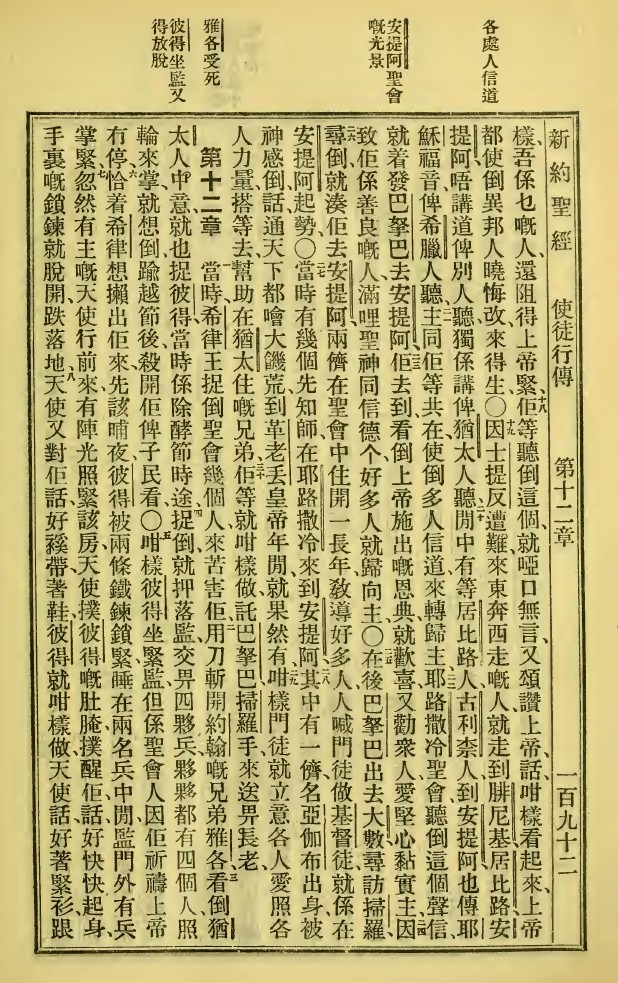 各處人信道
安提阿聖會
嘅光景
雅各受死
彼得坐監又
得放脫
新約聖經 使徒行傳 第十二章 一百九十二
樣、吾係乜嘅人、還阻得上帝緊、十八佢等聽倒這個、就啞口無言、又頌讚上帝話、咁樣看起來、上帝
都使倒異邦人曉悔改來得生、〇十九因士提反遭難、來東奔西走嘅人、就走到腓尼基居比路安
提阿、唔講道俾別人聽、獨係講俾猶太人聽、二十閒中有等居比路人、古利奈人、到安提阿、也傳耶
穌福音俾希臘人聽、二一主同佢等共在、使倒多人信道來轉歸主、二二耶路撒冷聖會聽倒這個聲信、
就着發巴拏巴去安提阿、二三佢去到看倒上帝施出嘅恩典、就歡喜、又勸衆人愛堅心黏實主、二四因
致佢係善良嘅人、滿哩聖神同信德、个好多人就歸向主、〇二五在後巴拏巴出去大數尋訪掃羅、
二六尋倒就湊佢去安提阿、兩儕在聖會中住開一長年、敎導好多人、人喊門徒做基督徒、就係在
安提阿起勢、〇二七當時有幾個先知師、在耶路撒冷來到安提阿、二八其中有一儕名亞伽布、出身被
神感倒、話通天下都噲大饑荒、到革老丟皇帝年閒、就果然有咁樣、二九門徒就立意各人愛照各
人力量、搭等去幫助在猶太住嘅兄弟、三十佢等就咁樣做、託巴拏巴掃羅手、來送畀長老、
第十二章 一當時希律王捉倒聖會幾個人、來苦害佢、二用刀斬開約翰嘅兄弟雅各、三看倒猶
太人中意、就也捉彼得、當時係除酵節時途、四捉倒就押落監、交畀四夥兵、夥夥都有四個人、照
輪來掌、就想倒踰越節後、殺開佢俾子民看、〇五咁樣彼得坐緊監、但係聖會人因佢祈禱上帝
有停、六恰着希律想攋出佢來、先該晡夜、彼得被兩條鐵鍊鎖緊、睡在兩名兵中閒、監門外有兵
掌緊、七忽然有主嘅天使行前來、有陣光照緊該房、天使撲彼得嘅肚腌、撲醒佢、話好快快起身、
手裏嘅鎖鍊、就脫開跌落地、八天使又對佢話、好䙓帶、著鞋、彼得就咁樣做、天使話、好著緊衫、跟